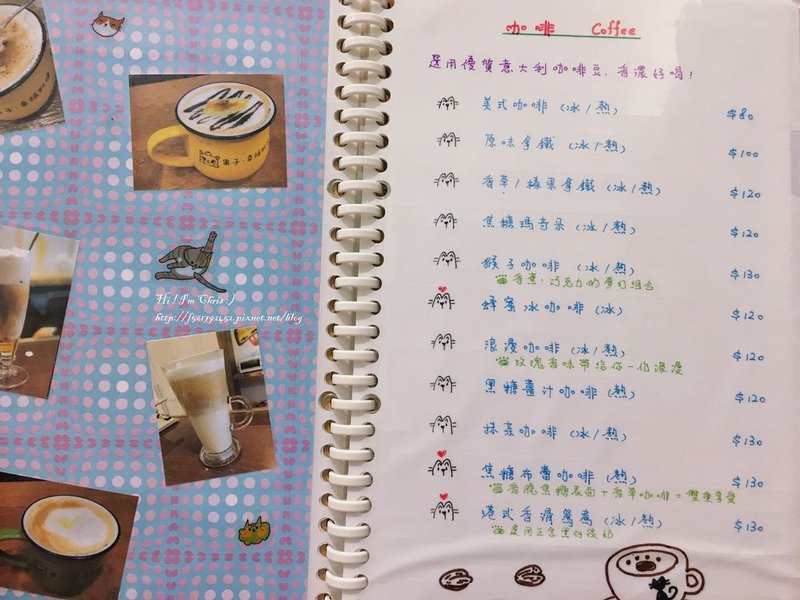 咖啡 Coffee
選用優質意大利咖啡豆,香濃好喝!
美式咖啡 (冰/熱) $80
原味拿鐵 (冰/熱) $100
香草/榛果拿鐵 (冰/熱) $120
焦糖瑪奇朵 (冰/熱) $120
猴子咖啡 (冰/熱) $130
香蕉.巧克力的夢幻組合
蜂蜜冰咖啡 (冰) $120
浪漫咖啡 (冰/熱) $120
玫瑰香味帶給你一份浪漫
黑糖薑汁咖啡 (熱) $120
抹茶咖啡 (冰/熱) $130
焦糖布蕾咖啡 (熱) $130
香脆焦糖表面+香草咖啡=雙重享受
港式香滑鴛鴦 (冰/熱) $130
Hi ! I'm Chris :)
http://f561792452.pixnet.net/blog